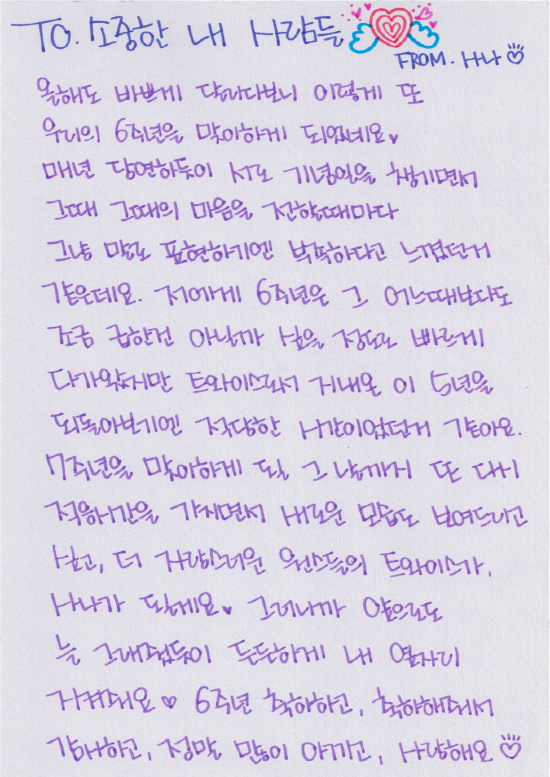 TO. 소중한 내 사람들
FROM. 사나
올해도 바쁘게 달리다보니 이렇게 또
우리의 6주년을 맞이하게 되었네요♥
매년 당연하듯이 서로 기념일을 챙기면서
그때 그때의 마음을 전할때마다
그냥 말로 표현하기엔 벅찍하다고 느꼈던거
같은데요. 저에게 6주년은 그 어느때보다도
조금 급한건 아닐까 싶을 정도로 빠르게
다가왔지만 트와이스로서 지내온 이 5년을
되돌아보기엔 적당한 시간이었던거 같아요.
7주년을 맞이하게 될 그 날까지 또 다시
적응시간을 가지면서 새로운 모습도 보여드리고
싶고, 더 자랑스러운 원스들의 트와이스가,
사나가 될게요♥ 그러니까 앞으로도
늘 그래줬듯이 든든하게 내 옆자리
지켜줘요♥ 6주년 축하하고, 축하해줘서
감사하고, 정말 많이 아끼고, 사랑해요♡